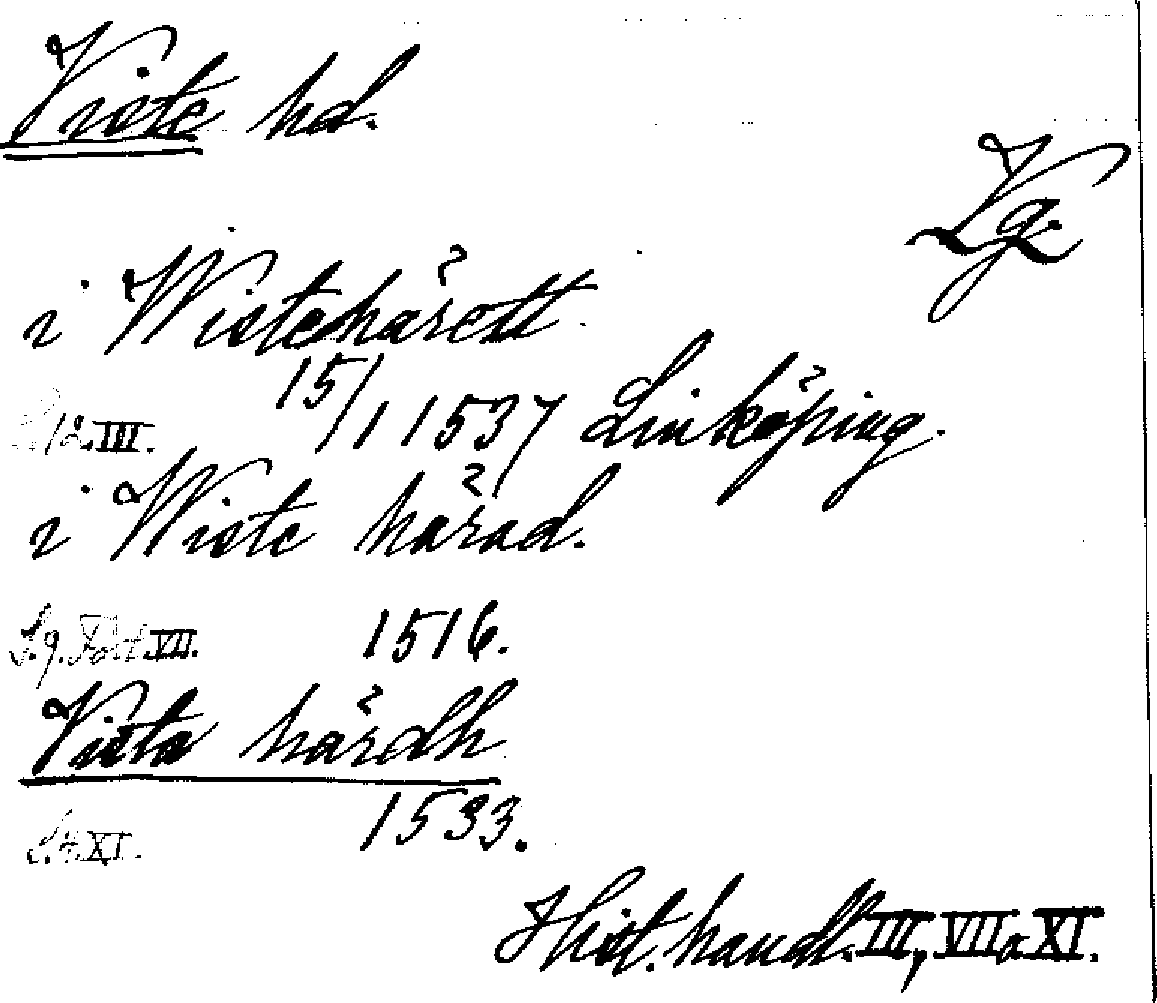 Viste hd.
Vg.
i Wistehärett
15/1 1537 Linköping.
S. 12. III.
i Wiste härad.
S. 9. VII. 1516.
Vista härdh
1533.
S. 4. XI.
Hist. handl. III, VII o XI.